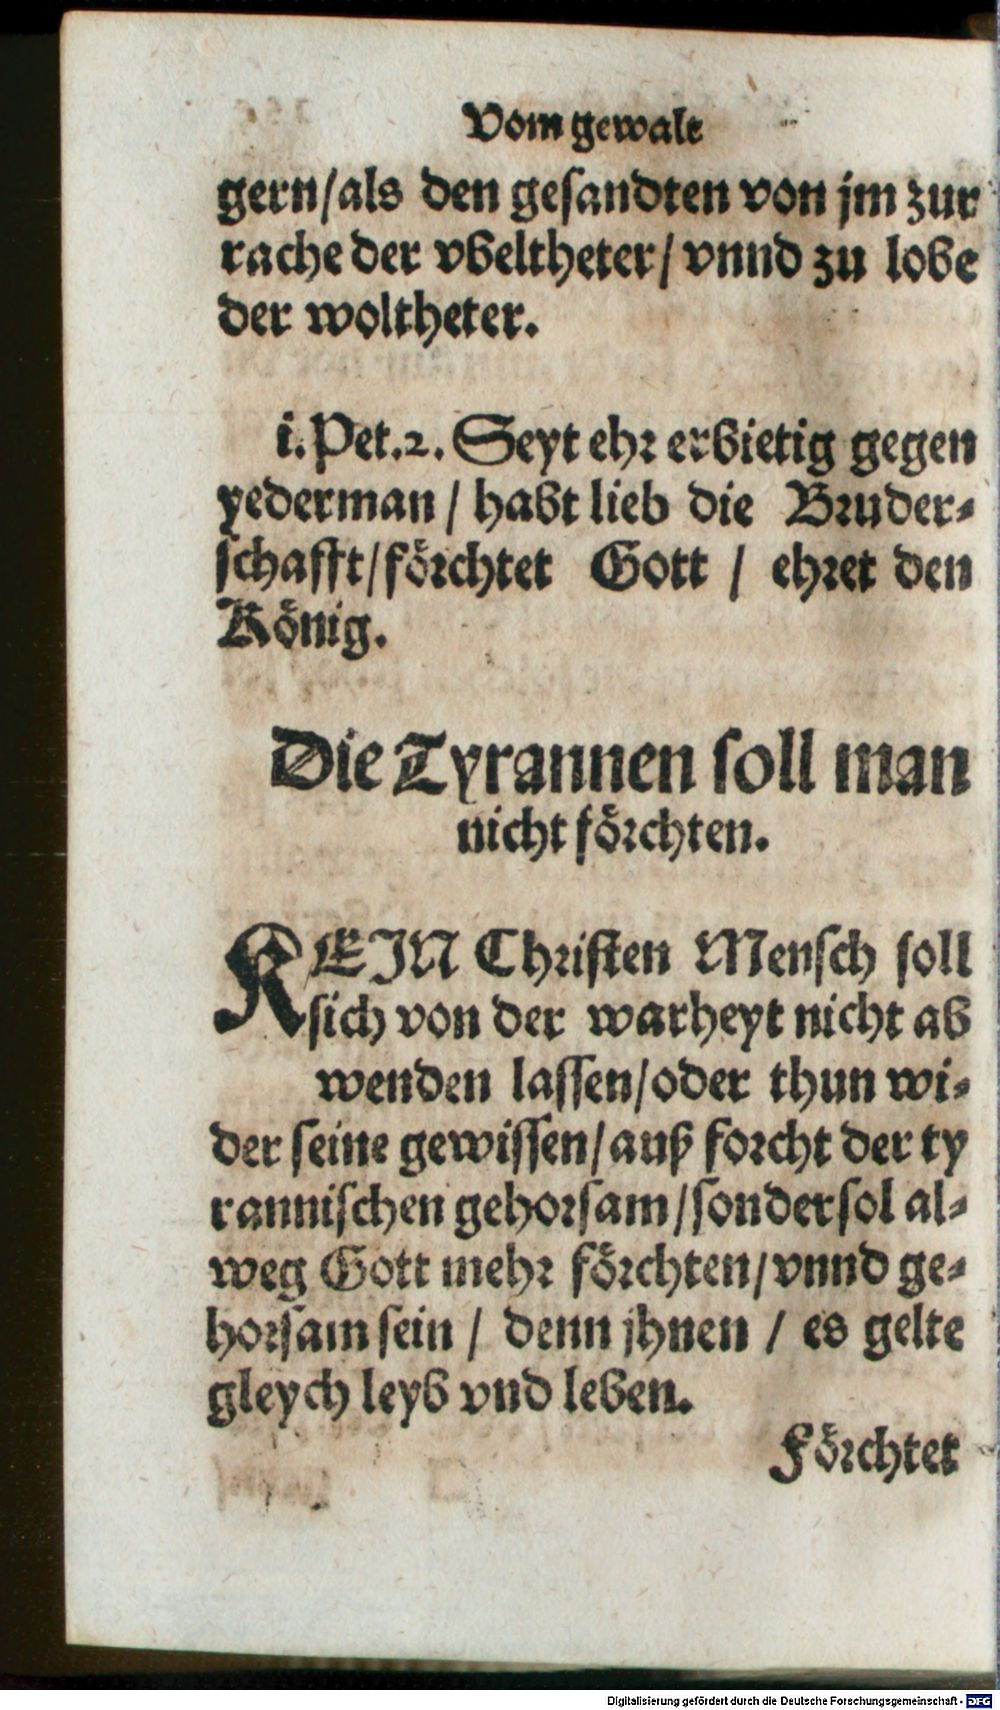 Vom gewalt
gern/als den gesandten von jm zur
rache der vbeltheter/ vnnd zu lobe
der woltheter.
i. Pet.2. Seyt ehr erbietig gegen
yederman / habt lieb die Bruder-
schafft/förchtet Gott / ehret den
König.
Die Tyrannen soll man
nicht förchten.
KEIN Christen Mensch soll
sich von der warheyt nicht ab
wenden lassen/oder thun wi-
der seine gewissen/auß forcht der ty
rannischen gehorsam/sonder sol al-
weg Gott mehr förchten/vnnd ge-
horsam sein / denn jhnen / es gelte
gleych leyb vnd leben.
Förchtet
Digitalisierung gefördert durch die Deutsche Forschungsgemeinschaft - DFG